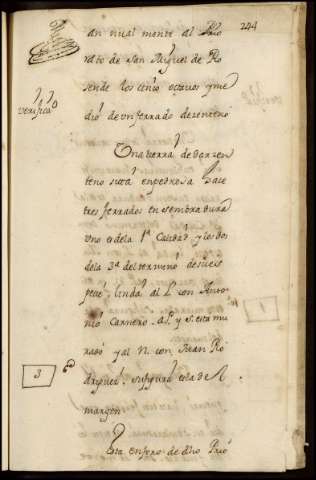 244
an nual mente al Prio
rato de San Miguel de Ro
sende los cinco octauos y me
dio de un ferrado de zenteno
verificado
Una tierra de dar zen
teno sita en pedrosa haze
tres ferrados en sembradura
uno es de la 1ª Calidad y los dos
de la 3ª del termino de su es
pecie, linda al L. con Anto
nio Carnero, al P. y S. esta mu
rado y al N. con Juan Ro
driguez, su figura es la de el
margen
3
1
Esta en foro de dho Prio